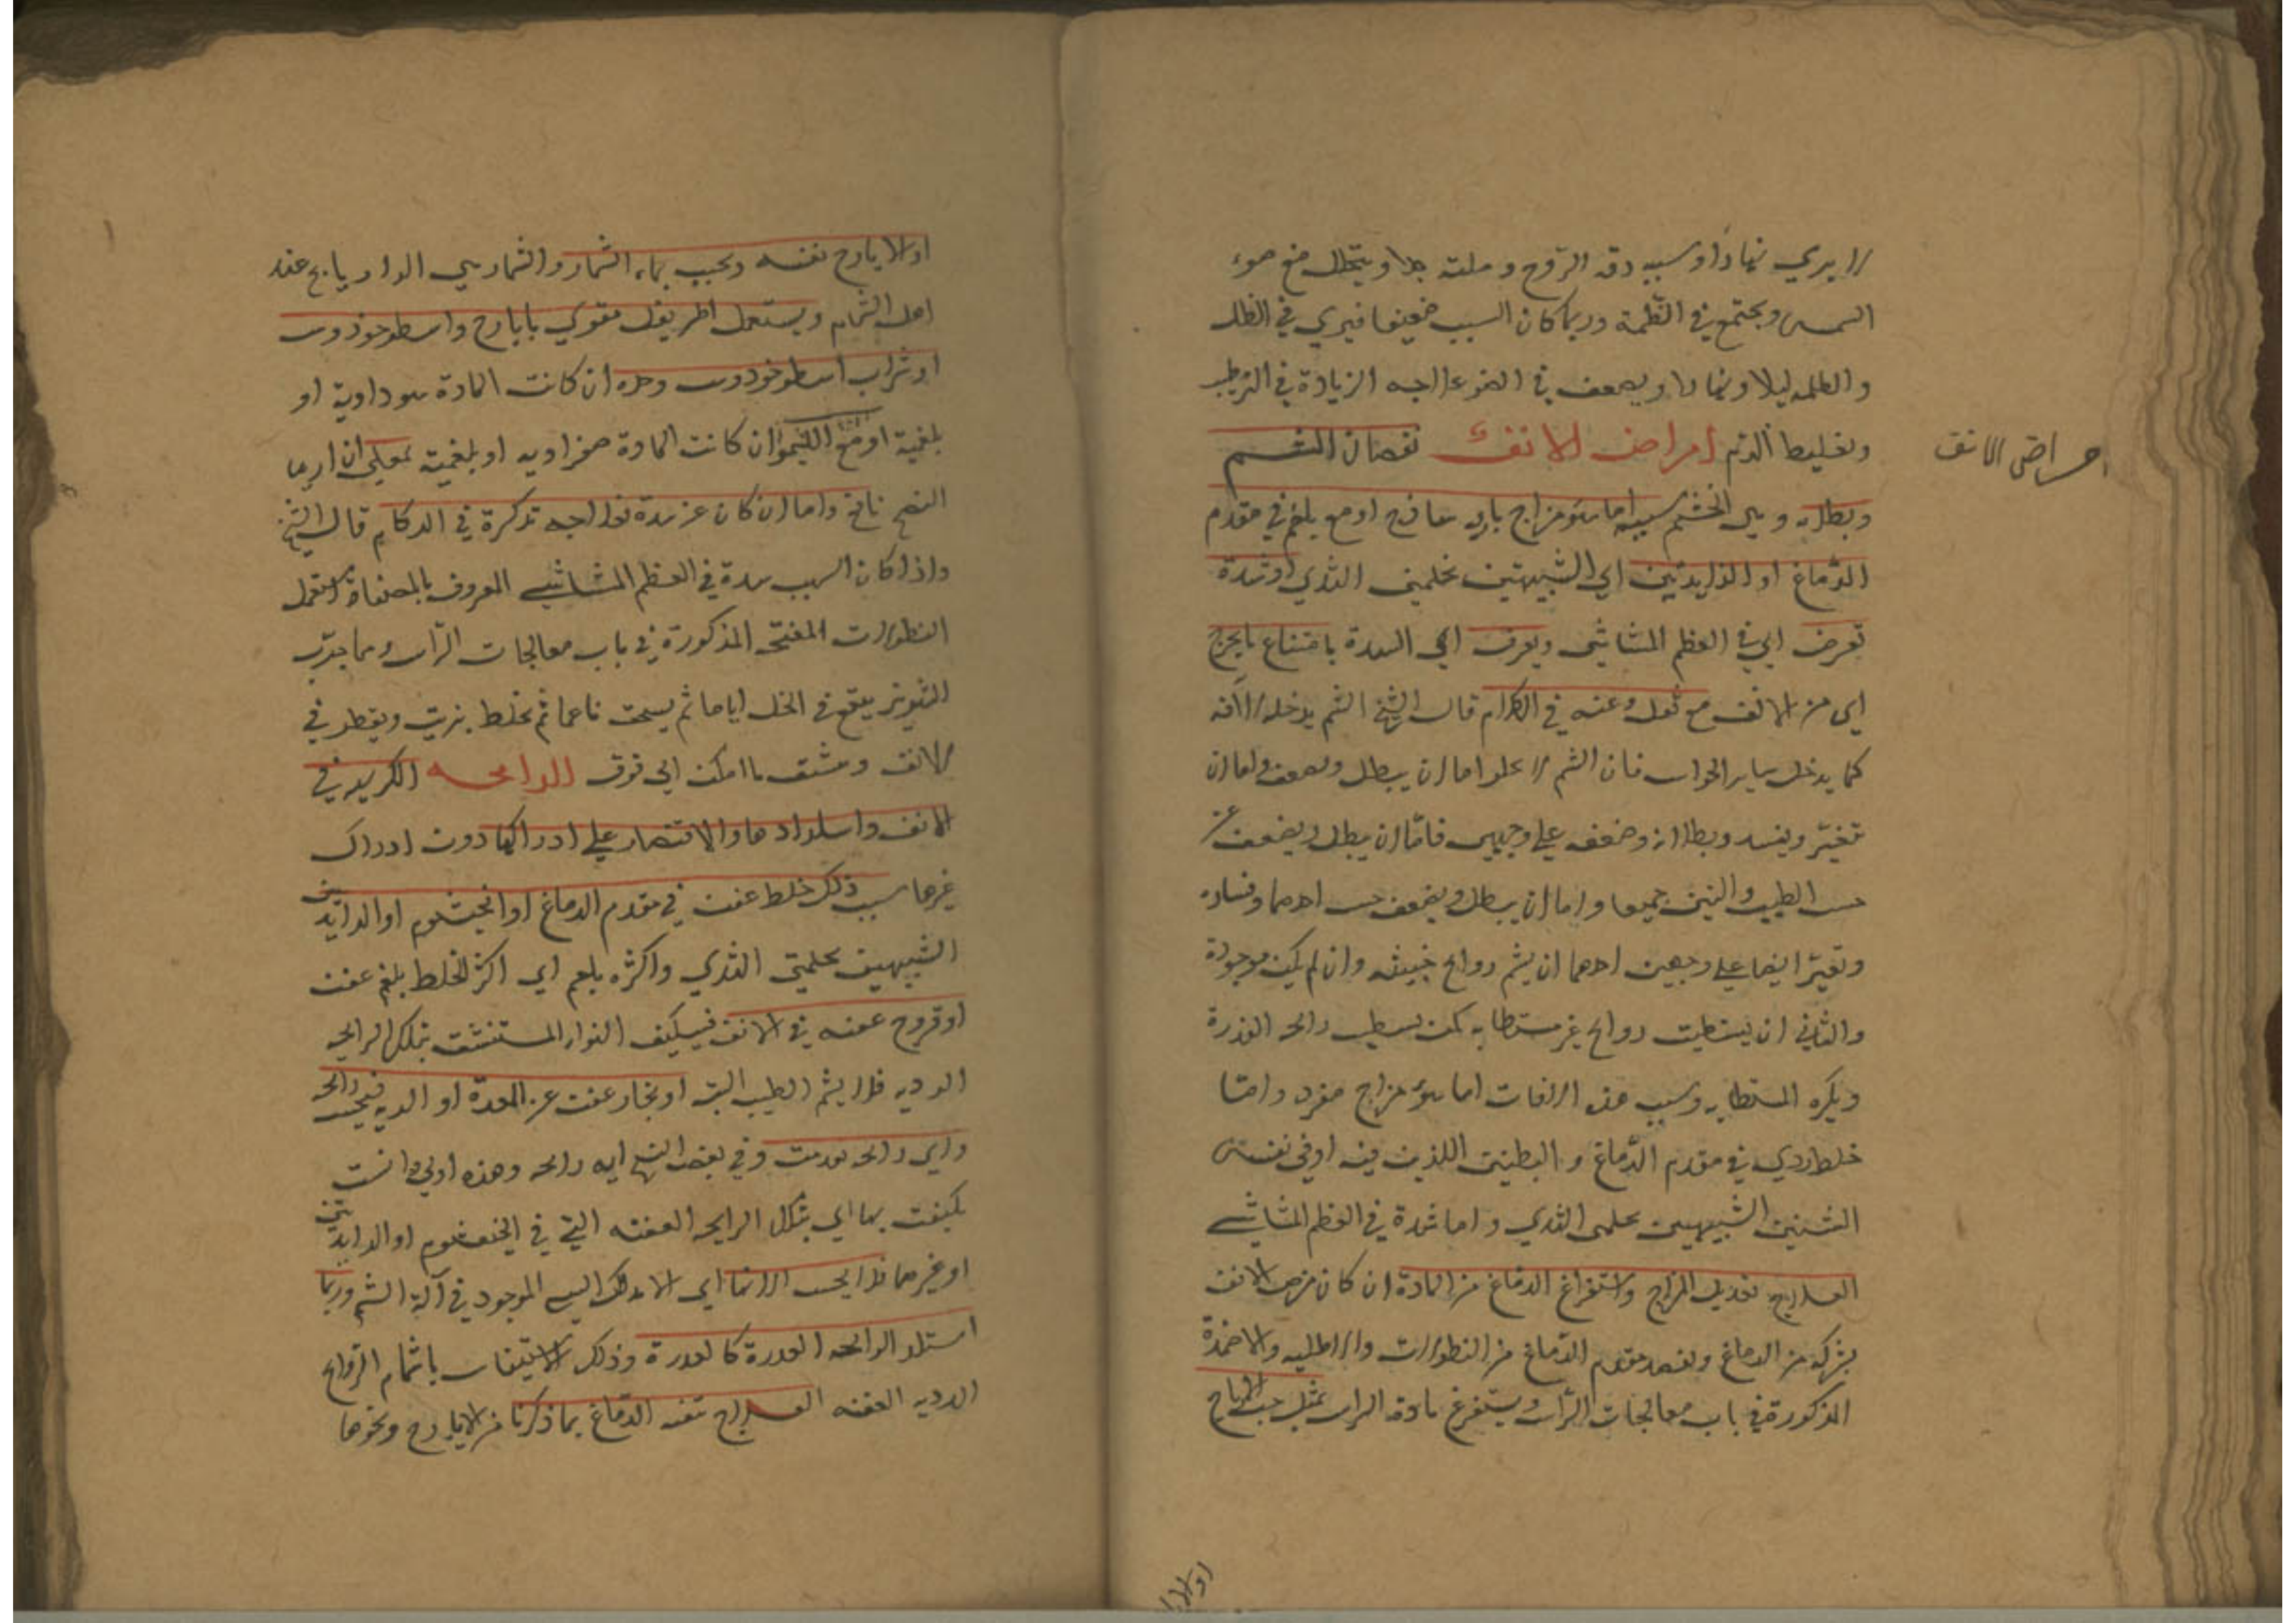 لا يري نهارا وسببه رقة الروح وقلته جدا ويتحلل مع ضوء
الشمس ويجتمع في الظلمة وربما كان السبب ضعيفا فيري في الظل
والظلمه ليلا ونهارا ويضعف في الضوء علاجه الزيادة في الترطيب
وتغليظ الدم امراض الانف نقصان الشم
امراض الانف
وبطلانه ويسمي الخشم سببه اما سوء مزاج بارد ساذج او مع بلغم في مقدم
الدماغ او الزايدتين اي الشبيهتين بحلمتي الثدي او سدة
تعرض اي في العظم المشاشي ويعرف اي السدة بامتناع ما يخرج
اي من الانف مع ثقل وغنه في الكلام قال الشيخ الشم يدخله الآفه
كما يدخل ساير الحواس فان الشم لا يخلو اما ان يبطل ويضعف واما ان
تتغير ويفسد وبطلانه وضعفه علي وجهين فاما ان يبطل ويضعف عن
حس الطيب والنتن جميعا واما ان يبطل ويضعف حس احدهما وفساده
وتغير ايضا علي وجهين احدهما ان يشم روايح خبيثه وان لم يكن موجودة
والثاني ان يستطيب روايح غير مستطابه كمن يستطيب رائحه العذرة
ويكره المستطابه وسبب هذه الافات اما سوء مزاج مفرد واما
خلط ردي في مقدم الدماغ و البطنين اللذين فيه او في نفس
الشيئين الشبيهين بحلمتي الثدي واما سدة في العظم المشاشي
العلاج تعديل المزاج واستفراغ الدماغ من المادة ان كان مرض الانف
بشركه من الدماغ ويقصد مقدم الدماغ من النطولات والاطليه والاضمدة
المذكورة في باب معالجات الراس ويستفرغ مادة الراس بمثل حب الايارج
او الايارج نفسه ويحبب بماء الشمار والشمار هي الرازيانج عند
اهل الشام ويستعمل اطريفل مقوي بايارج واسطوخودوس
او شراب اسطوخودوس وحده ان كانت المادة سوداوية او
بلغمية او مع الليمو ان كانت المادة صفراويه او بلغمية
النضج نافع واما ان كان عن سدة فعلاجه تذكرة في الزكام قال الشيخ
واذا كان السبب سدة في العظم المشاشي المعروف بالمصفاة استعمل
النطولات المفتحه المذكورة في باب معالجات الراس ومما جرب
الشونيز ينقع في الخل اياما ثم يسحق ناعما ثم يخلط بزيت ويقطر في
الانف وينشق ما امكن الي فوق الرايحه الكريه في
الانف واستلذاذها والاقتصار علي ادراكها دون ادراك
غيرها سبب ذلك خلط عفن في مقدم الدماغ او الخيشوم او الزايدتين
الشبيهين بحلمتي الثدي واكثره بلغم اي اكثر الخلط بلغم عفن
او قروح عفنه في الانف فيتكيف الهواء المستنشق بتلك الرايحه
الرديه فلا يشم الطيب البته او بخار عفن عن المعدة او الريه فيحس رائحه
واي رائحه وردت وفي بعض النسخ ايه رائحه وهذه اولي وانسب
تكيفت بها اي بتلك الرايحه العفنه التي في الخيشوم او الزايدتين
او غيرهما فلا يحس الا بها اي الا بذلك الموجود في آلة الشم وربما
استلذ الرائحه القذرة كالعذرة وذلك لاستيناسه باشمام الروايح
الرديه العفنه العلاج تنقيه الدماغ بما ذكرنا من الايارج ونحوها
او الا